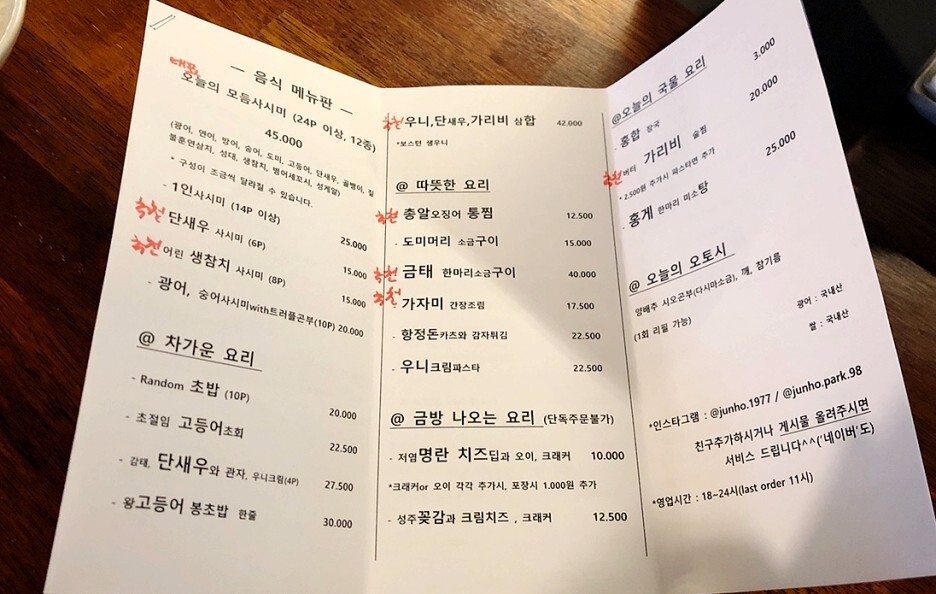 대표
— 음식 메뉴판 —
오늘의 모듬사시미 (24P 이상, 12종)
45.000
(광어, 연어, 방어, 숭어, 도미, 고등어, 단새우, 골뱅이, 칠
물훈연삼치, 성대, 생참치, 병어세꼬시, 성게알)
* 구성이 조금씩 달라질 수 있습니다.
- 1인사시미 (14P 이상) 25.000
추천 단새우 사시미 (6P) 15.000
추천 어린 생참치 사시미 (8P) 15.000
- 광어, 숭어사시미with트러플곤부(10P) 20.000
@ 차가운 요리
- Random 초밥 (10P) 20.000
- 초절임 고등어초회 22.500
- 감태, 단새우와 관자, 우니크림(4P) 27.500
- 왕고등어 봉초밥 한줄 30.000
추천 우니,단새우,가리비 삼합 42.000
*보스턴 생우니
@ 따뜻한 요리
추천 총알오징어 통찜 12.500
- 도미머리 소금구이 15.000
추천 금태 한마리소금구이 40.000
추천 가자미 간장조림 17.500
- 항정돈카츠와 감자튀김 22.500
- 우니크림파스타 22.500
@ 금방 나오는 요리 (단독주문불가)
- 저염명란 치즈딥과 오이, 크래커 10.000
*크래커or 오이 각각 추가시, 포장시 1.000원 추가
- 성주꽂감과 크림치즈 , 크래커 12.500
@오늘의 국물 요리
- 홍합 장국 3.000
추천 버터 가리비 술찜 20.000
* 2.500원 추가시 파스타면 추가
- 홍게 한마리 미소탕 25.000
@ 오늘의 오토시
양배추 시오곤부(다시마소금), 깨, 참기름
(1회 리필 가능)
광어 : 국내산
쌀 : 국내산
*인스타그램 : @junho.1977 / @junho.park.98
친구추가하시거나 게시물 올려주시면
서비스 드립니다^^('네이버'도)
*영업시간 : 18~24시(last order 11시)